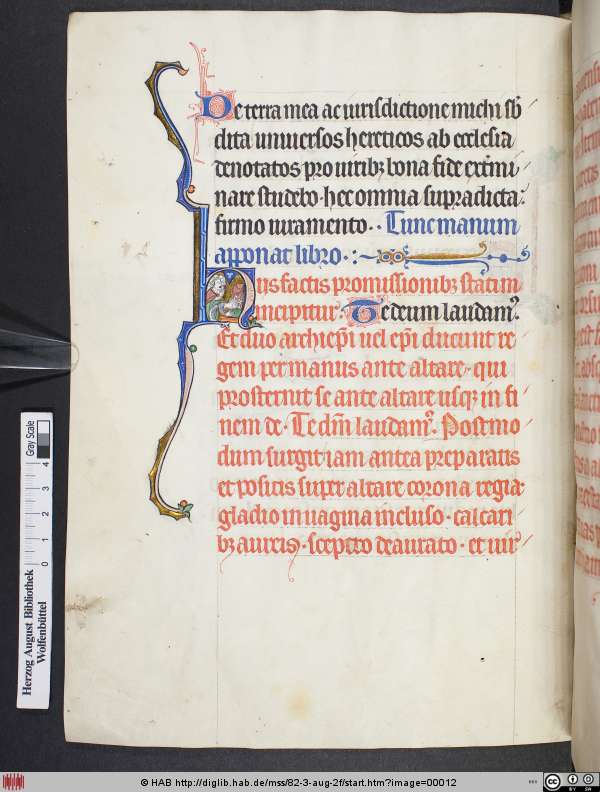 De terra mea ac iurisdictione michi sb̄
dita uniuersos hereticos ab ecclesia
denotatos pro uiribꝫ bona fide extmi
nare studebo · hec omnia supradicta
firmo iuramento · Tunc manum
apponat libro ·
Hiis factis promissionibꝫ statim
incipitur · Te deum laudam᷒
Et duo archiep̄i uel ep̄i ducunt re
gem per manus ante altare · qui
prosternit se ante altare usqꝫ in fi
nem de · Te dm̄ laudam᷒ · Postmo
dum surgit iam antea preparatis
et positis super altare corona regia ·
gladio in uagina incluso · calcari
bꝫ aureis · sceptro deaurato · et uir᷒
Gray Scale
0 1 2 3 4
Herzog August Bibliothek
Wolfenbüttel
© HAB http://diglib.hab.de/mss/82-3-aug-2f/start.htm?image=00012
CC BY SA